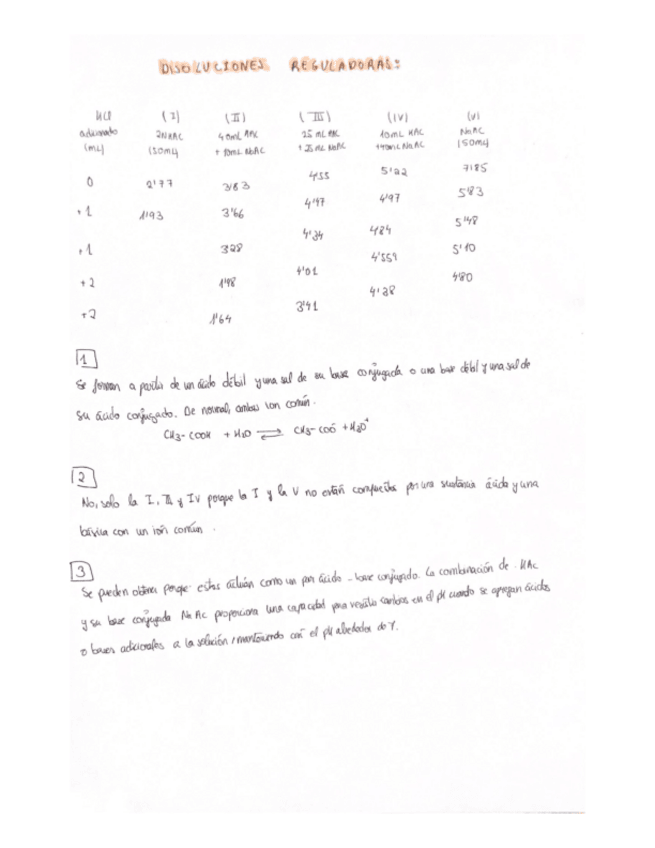 DISOLUCIONES REGULADORAS:
HCl (I) (II) (III) (IV) (V)
adicionado HAC 40mL HAC 25 mL HAC 10mL HAC NaAC
(mL) (50mL) + 10mL NaAC + 25 mL NaAC +40mL NaAC (50mL)
0 2'77 3'83 4'55 5'22 7'85
+1 1'93 3'66 4'47 4'97 5'83
+1 3'28 4'34 4'84 5'48
+2 1'98 4'01 4'559 5'10
+2 1'64 3'41 4'28 4'80
1
Se forman a partir de un ácido débil y una sal de su base conjugada o una base débil y una sal de
su ácido conjugado. De normal, ambos ion común.
CH3-COOH + H2O ⇌ CH3-COO⁻ + H3O⁺
2
No, solo la I, III y IV porque la I y la V no están compuestas por una sustancia ácida y una
básica con un ión común.
3
Se pueden obtener porque estas actúan como un par ácido-base conjugado. La combinación de HAc
y su base conjugada NaAc proporciona una capacidad para resistir cambios en el pH cuando se agregan ácidos
o bases adicionales a la solución, manteniendo así el pH alrededor de 7.